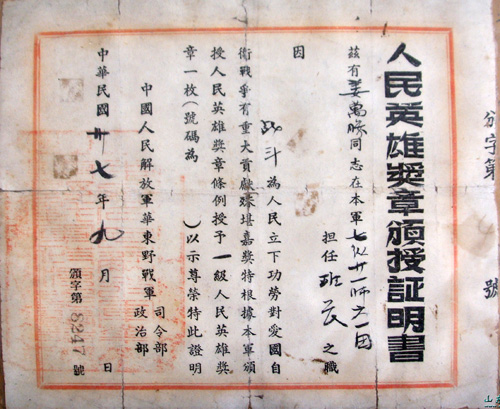 頒字第 號
人民英雄奬章頒授証明書
茲有姜萬勝同志在本軍七纵廿一师六一团
担任班長之職
因战斗為人民立下功劳對爱國自
衛戰爭有重大貢献殊堪嘉奬特根據本軍頒
授人民英雄奬章條例授予一級人民英雄奬
章一枚(號碼為 )以示尊榮特此證明
中國人民解放軍華東野戰軍
司令部
政治部
中華民國卅七年九月 日
頒字第8247號